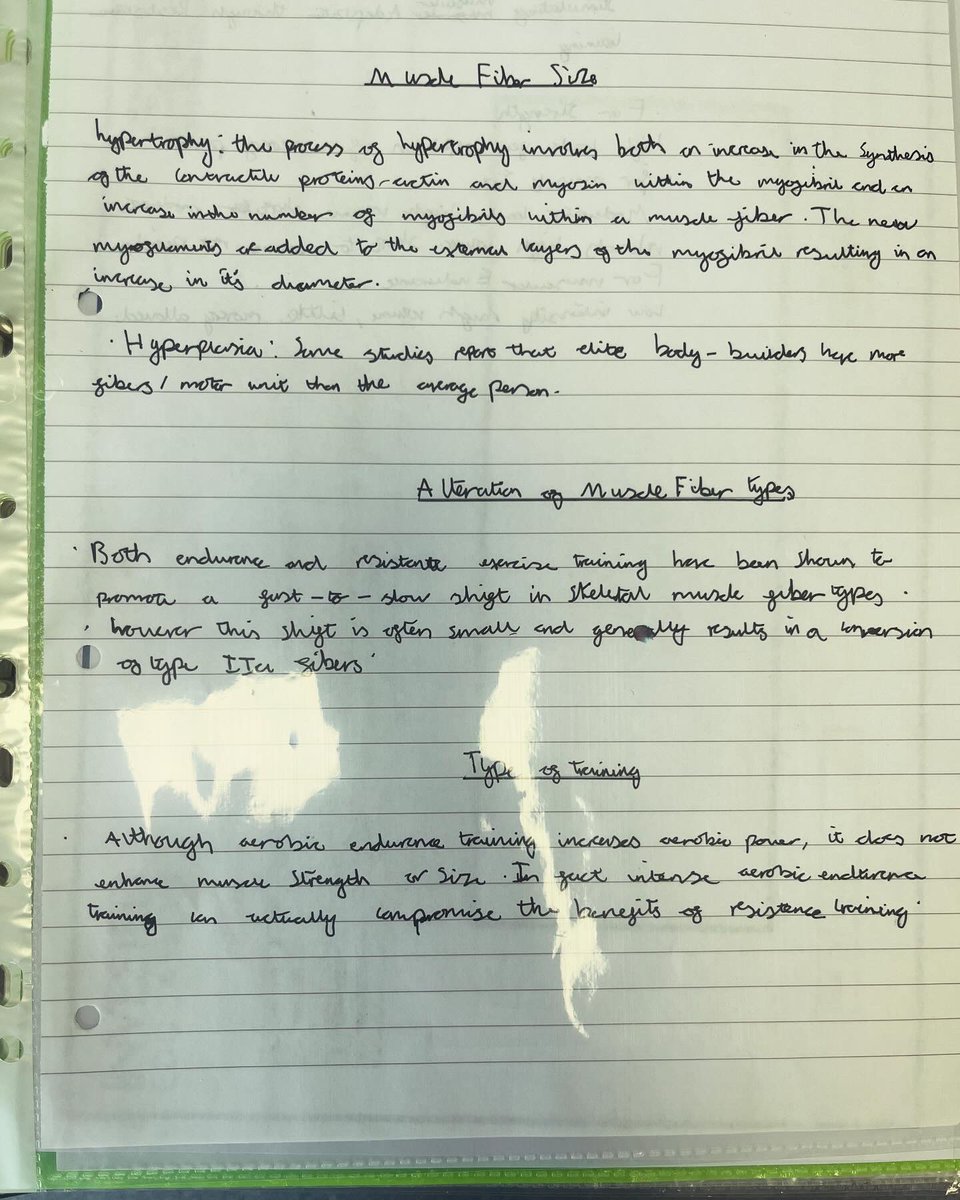 Muscle Fiber Size
hypertrophy: the process of hypertrophy involves both an increase in the synthesis
of the contractile proteins-actin and myosin within the myofibril and an
increase in the number of myofibils within a muscle fiber. The new
myofilaments are added to the external layers of the myofibril resulting in an
increase in it's diameter.
· Hyperplasia: Some studies report that elite body-builders have more
fibers/motor unit than the average person.
Alteration of Muscle Fiber types
· Both endurance and resistante exercise training have been shown to
promote a fast-to-slow shift in skeletal muscle fiber types.
· however this shift is often small and generally results in a conversion
of type IIa fibers
Type of training
· Although aerobic endurance training increases aerobic power, it does not
enhance muscle strength or size. In fact intense aerobic endurence
training can actually compromise the benefits of resistence training